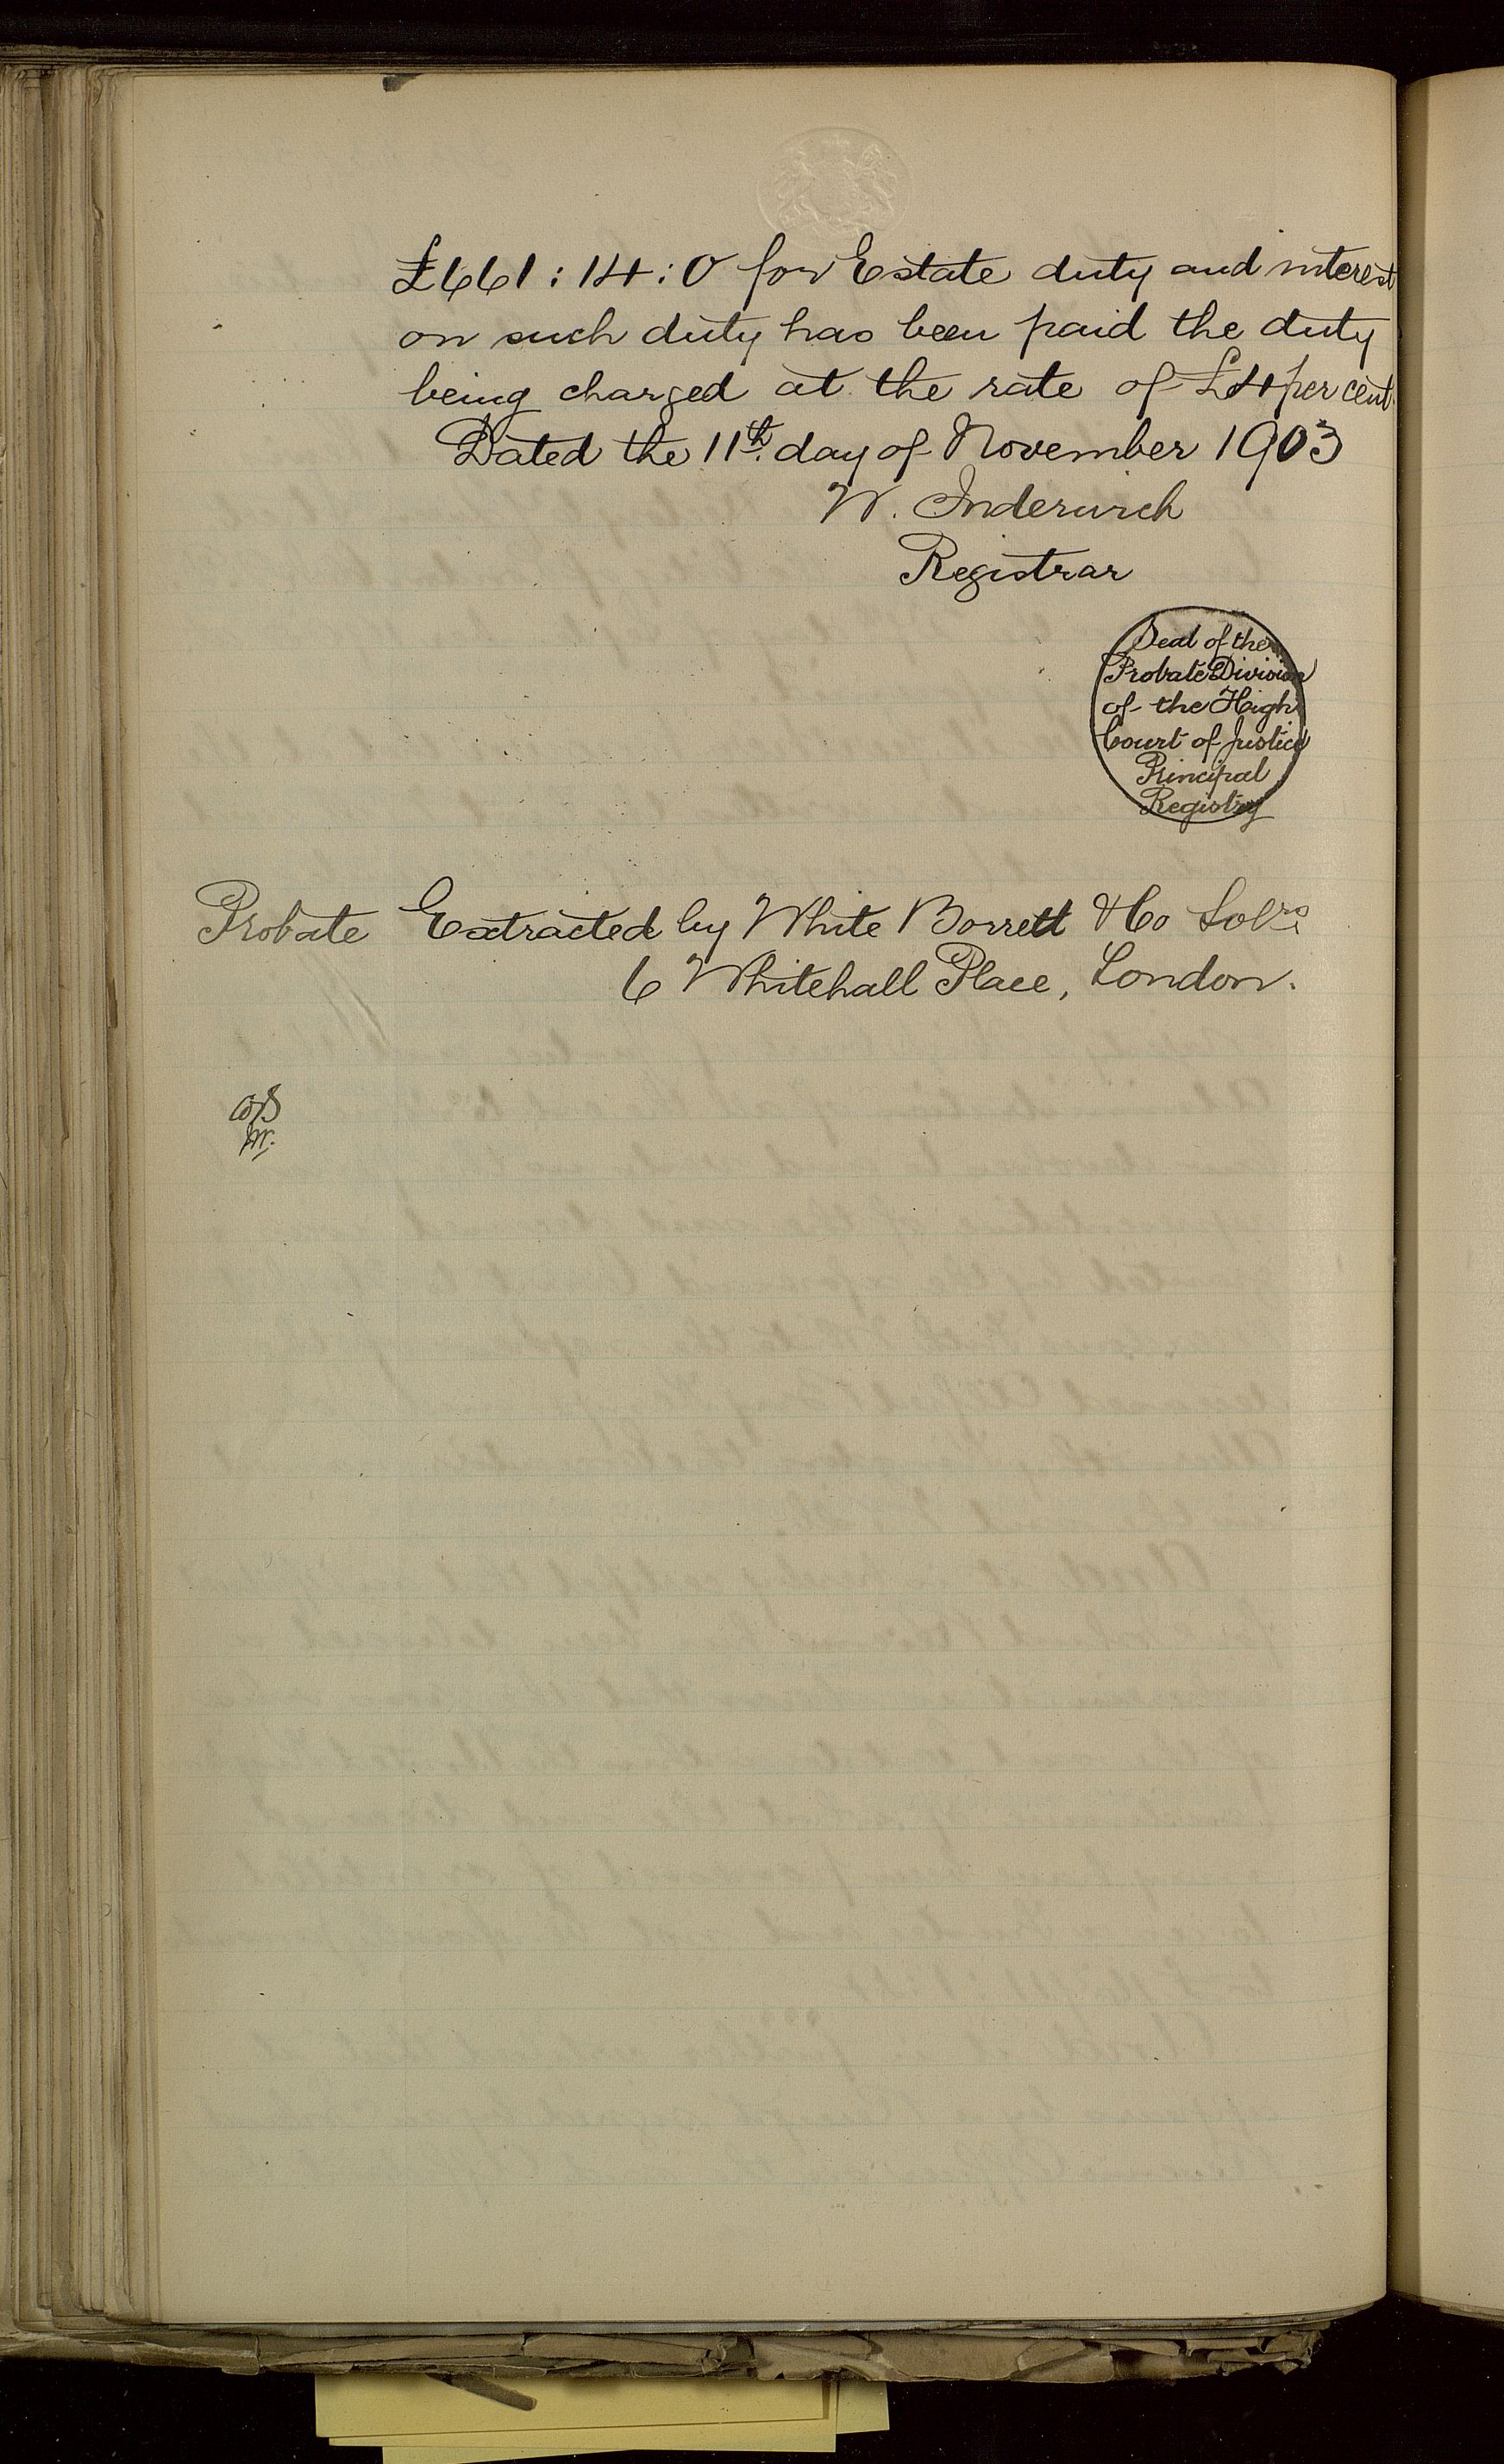 £661 : 14 : 0 for Estate duty and interest
on such duty has been paid the duty
being charged at the rate of £4 per cent.
Dated the 11th. day of November 1903
W. Inderwick
Registrar
Seal of the
Probate Division
of the High
Court of Justice
Principal
Registry
Probate Extracted by White Borrett & Co Solrs
6 Whitehall Place, London.